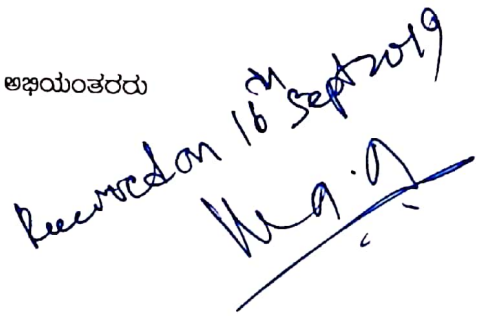 ಅಭಿಯಂತರರು
Received on 16th Sept 2019